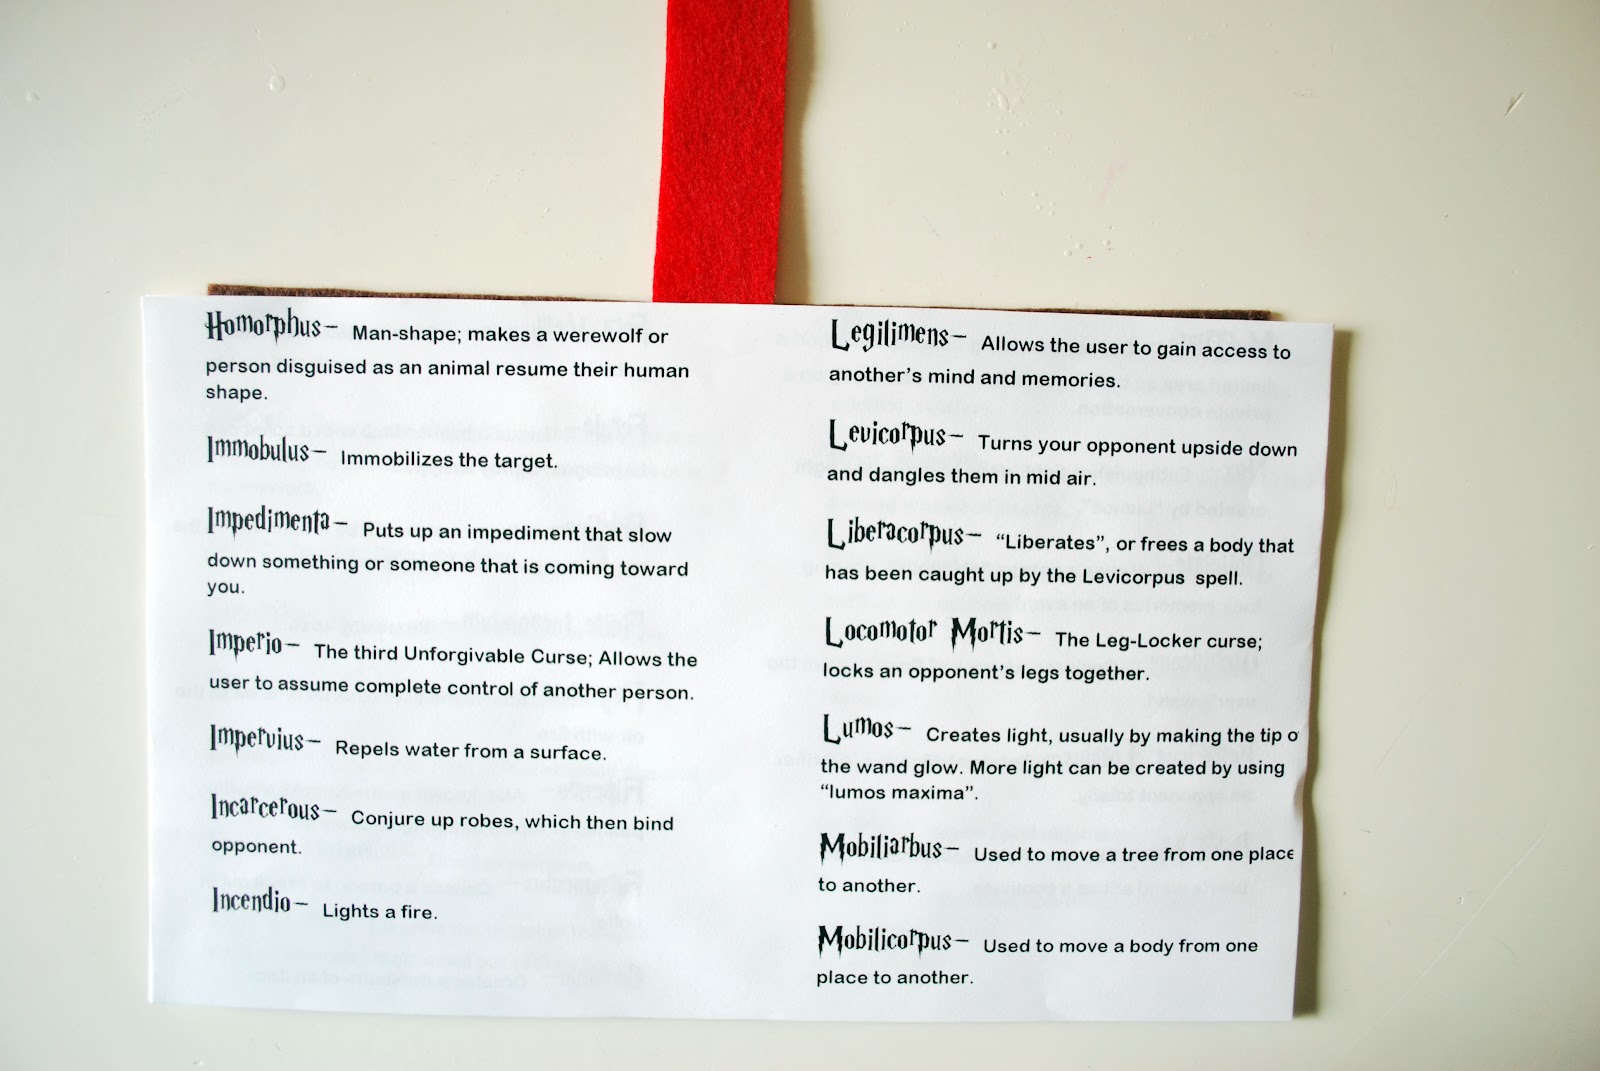 Homorphus– Man-shape; makes a werewolf or
person disguised as an animal resume their human
shape.
Immobulus– Immobilizes the target.
Impedimenta– Puts up an impediment that slow
down something or someone that is coming toward
you.
Imperio– The third Unforgivable Curse; Allows the
user to assume complete control of another person.
Impervius– Repels water from a surface.
Incarcerous– Conjure up robes, which then bind
opponent.
Incendio– Lights a fire.
Legilimens– Allows the user to gain access to
another’s mind and memories.
Levicorpus– Turns your opponent upside down
and dangles them in mid air.
Liberacorpus– “Liberates”, or frees a body that
has been caught up by the Levicorpus spell.
Locomotor Mortis– The Leg-Locker curse;
locks an opponent’s legs together.
Lumos– Creates light, usually by making the tip o
the wand glow. More light can be created by using
“lumos maxima”.
Mobiliarbus– Used to move a tree from one place
to another.
Mobilicorpus– Used to move a body from one
place to another.